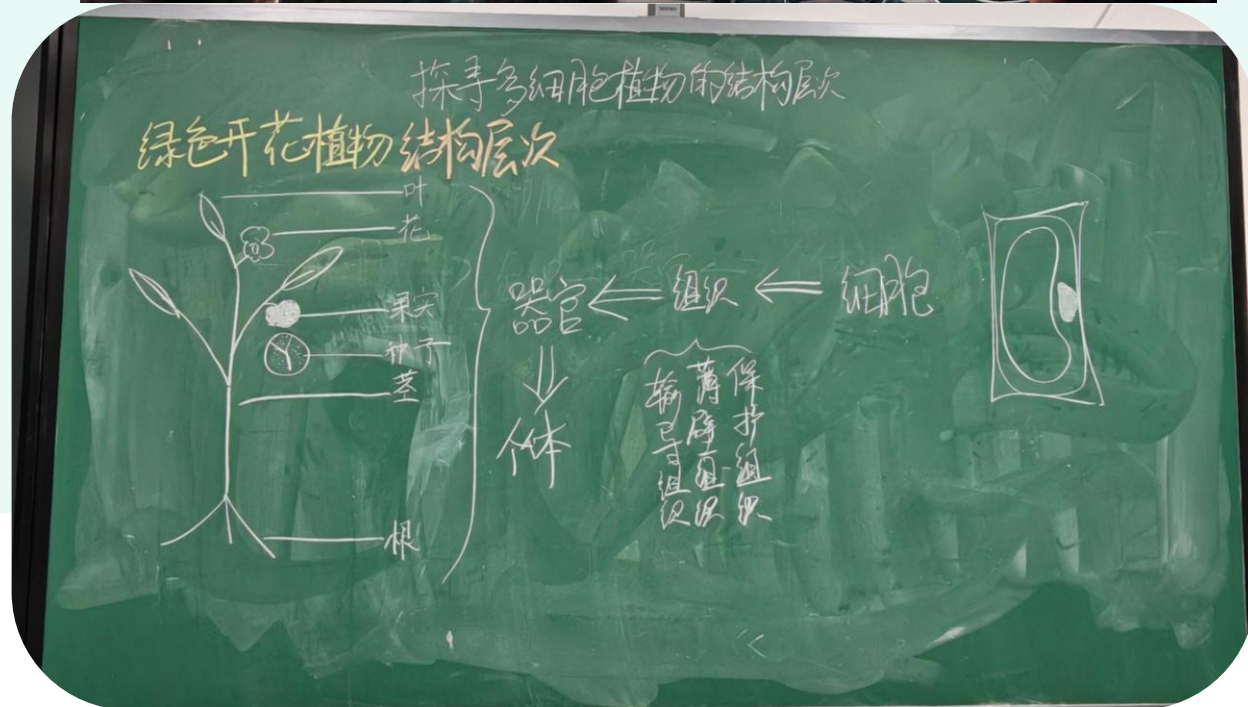 探寻多细胞植物的结构层次
绿色开花植物结构层次
叶
花
果实
种子
茎
根
器官 ← 组织 ← 细胞
⇓
个体
输导组织
薄壁组织
保护组织